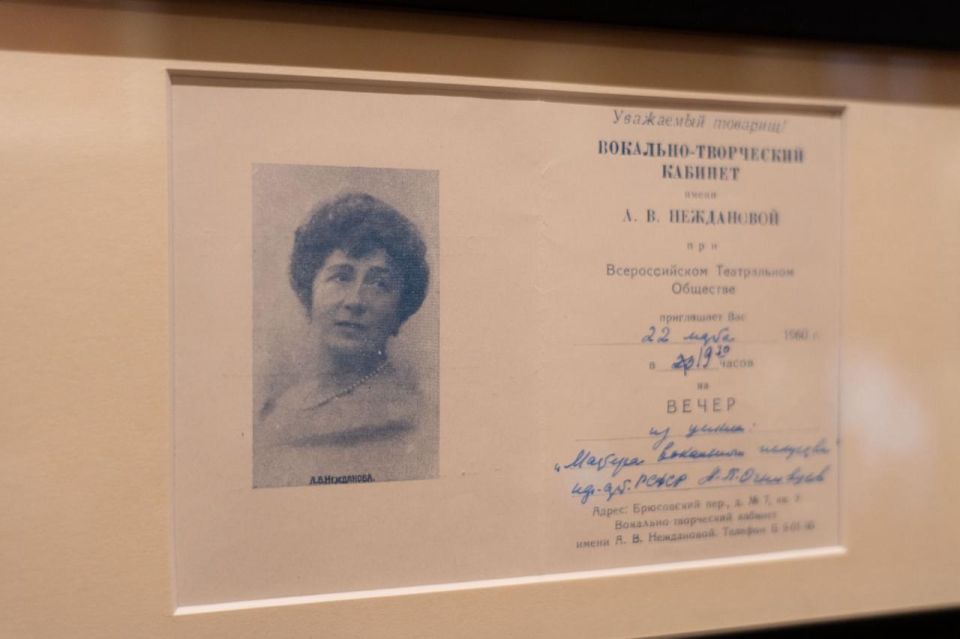 А.В.НЕЖДАНОВА.
Уважаемый товарищ!
ВОКАЛЬНО-ТВОРЧЕСКИЙ
КАБИНЕТ
имени
А. В. НЕЖДАНОВОЙ
при
Всероссийском Театральном
Обществе
приглашает Вас
22 1960 г.
в 19 30 часов
на
ВЕЧЕР
из цикла:
„Мастера вокального искусства"
РСФСР А. П. Огнивцев
Адрес: Брюсовский пер., д. № 7, кв.
Вокально-творческий кабинет
имени А. В. Неждановой. Телефон Б